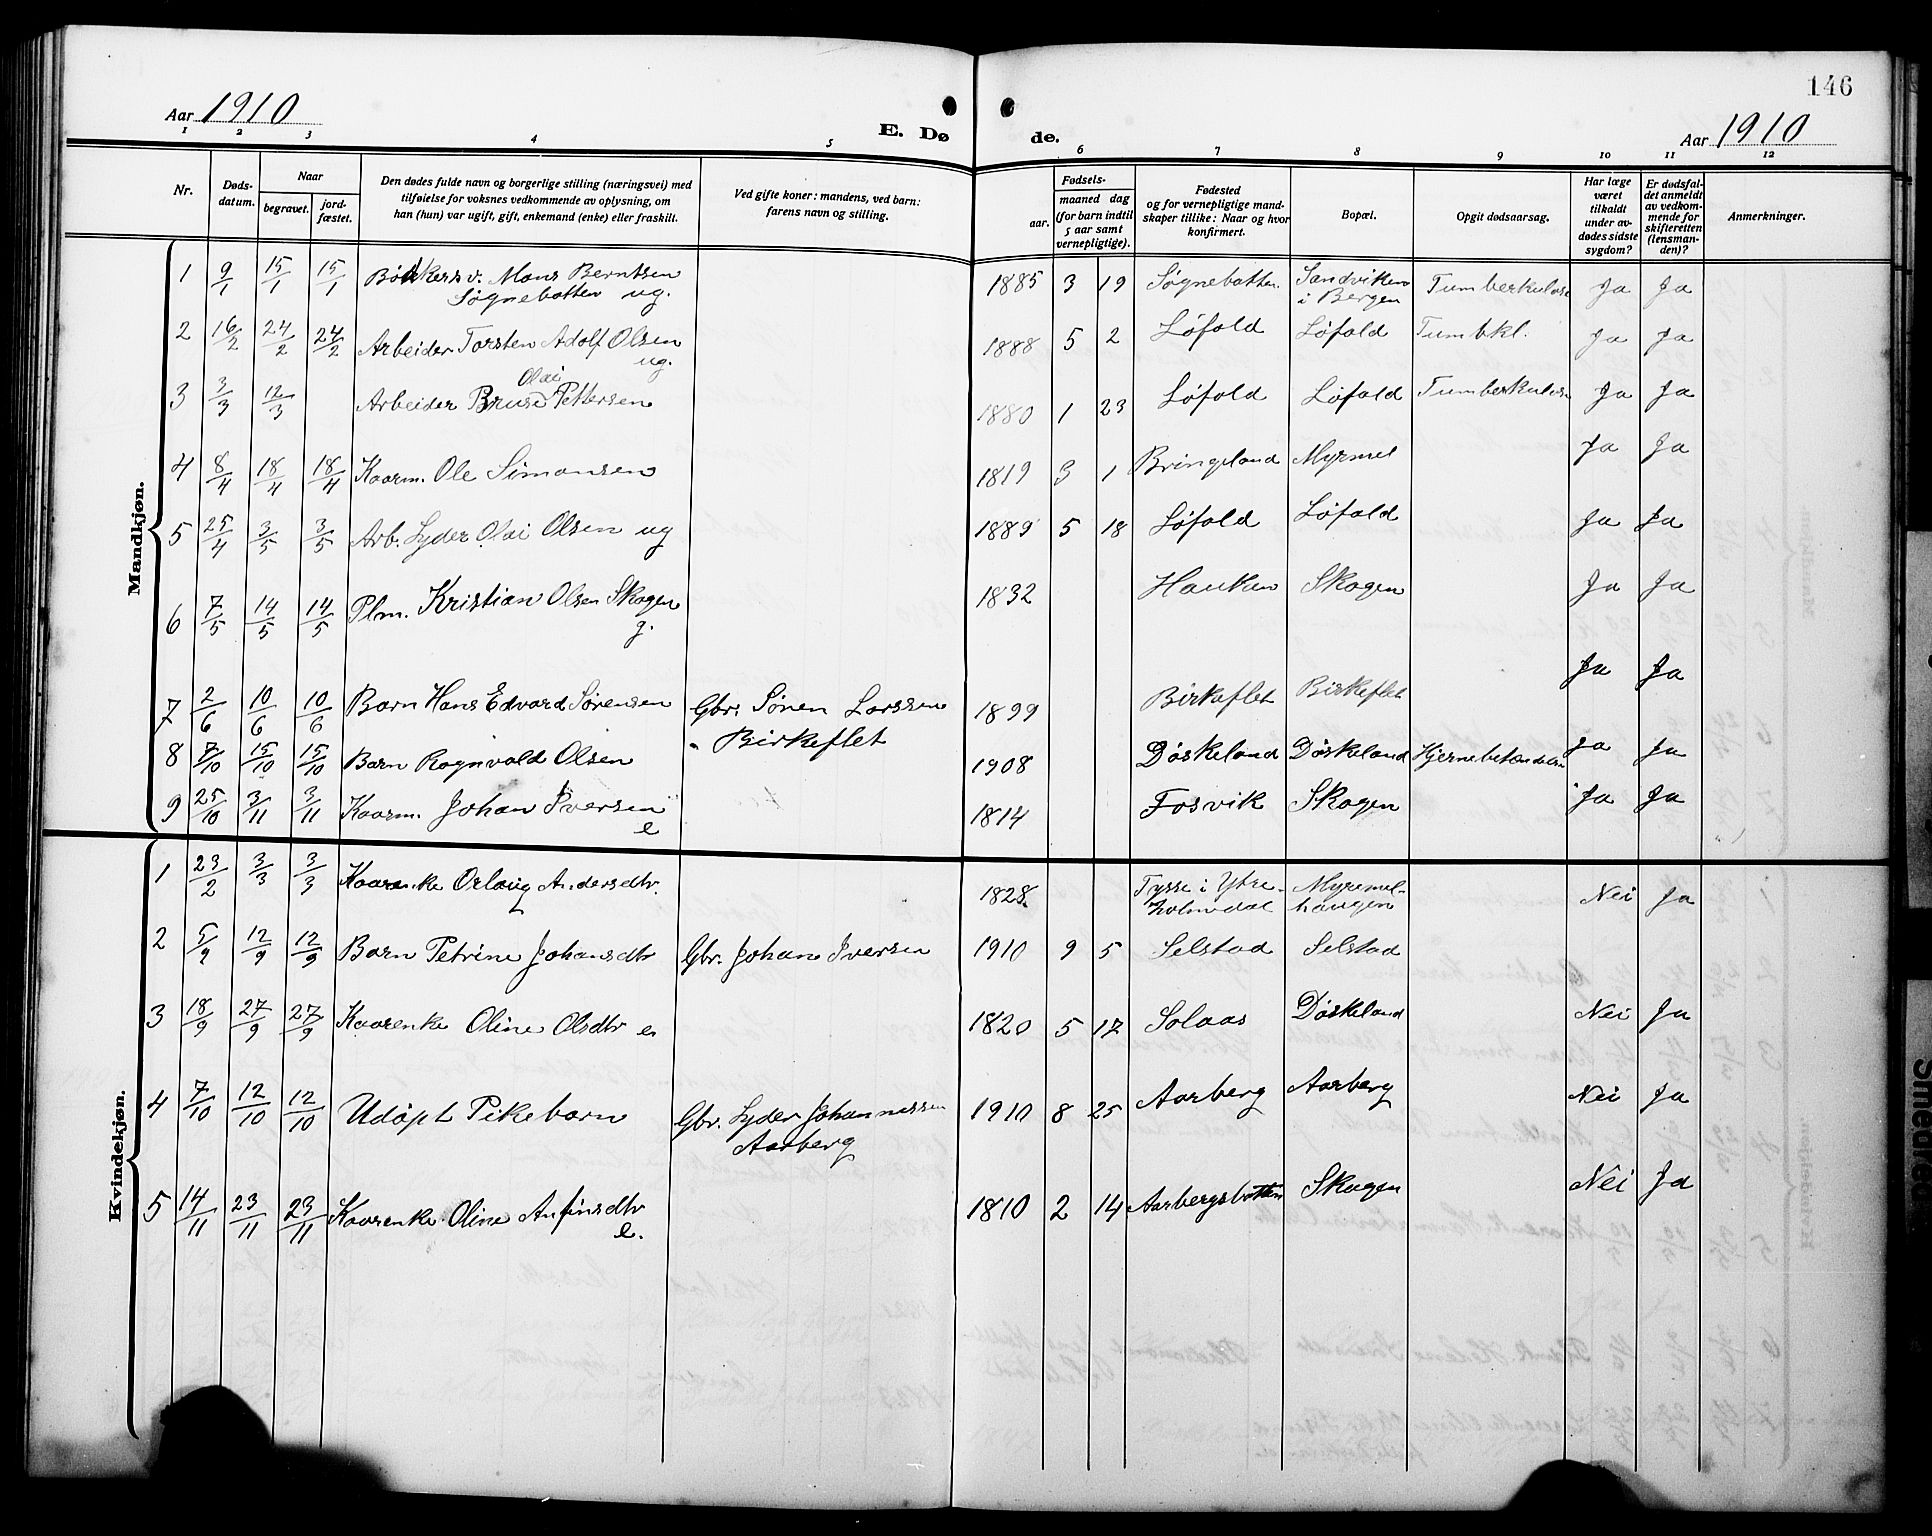 146
Aar 1910
E. Dø de.
Aar 1910
1 2 3 4 5 6 7 8 9 10 11 12
Nr.
Døds-
datum.
Naar
begravet.
jord-
fæstet.
Den dødes fulde navn og borgerlige stilling (næringsvei) med
tilføielse for voksnes vedkommende av oplysning, om
han (hun) var ugift, gift, enkemand (enke) eller fraskilt.
Ved gifte koner: mandens, ved barn:
farens navn og stilling.
Fødsels-
aar.
maaned dag
(for barn indtil
5 aar samt
vernepligtige).
Fødested
og for vernepligtige mand-
skaper tillike: Naar og hvor
konfirmert.
Bopæl.
Opgit dødsaarsag.
Har læge
været
tilkaldt
under av-
dødes sidste
sygdom?
Er dødsfal-
det anmeldt
av vedkom-
mende for
skifteretten
(lensman-
den)?
Anmerkninger.
Mandkjøn.
1 9/1 15/1 15/1 Bødkersv. Mons Berntsen 1885 3 19 Søgnebotten Sandviken Tumberkulose Ja Ja
Søgnebotten ug. i Bergen
2 16/2 24/2 24/2 Arbeider Torsten Adolf Olsen 1888 5 2 Løfold Løfold Tumbkl. Ja Ja
ug.
Olai
3 3/3 12/3 Arbeider Bruse Pettersen 1880 1 23 Løfold Løfold Tumberkulose Ja Ja
4 8/4 18/4 18/4 Kaarm. Ole Simonsen 1819 3 1 Bringeland Myrmel Ja Ja
5 25/4 3/5 3/5 Arb. Lyder Olai Olsen ug 1889 5 18 Løfold Løfold Ja Ja
6 7/5 14/5 14/5 Plm. Kristian Olsen Skogen 1832 Hauken Skogen Ja Ja
g.
7 2/6 10/6 10/6 Barn Hans Edvard Sørensen Gbr. Søren Larssen 1899 Birkeflet Birkeflet Ja Ja
Birkeflet
8 7/10 15/10 15/10 Barn Ragnvald Olsen 1908 Døskeland Døskeland Hjernebetændelse Ja Ja
9 25/10 3/11 3/11 Kaarm. Johan Iversen 1814 Fosvik Skogen Ja Ja
e
Kvindekjøn.
1 23/2 3/3 3/3 Kaarenke Orlaug Andersdtr. 1828 Tysse i Ytre- Myremel- Nei Ja
holmedal haugen
2 5/9 12/9 12/9 Barn Petrine Johansdtr Gbr. Johan Iversen 1910 9 5 Selstad Selstad
3 18/9 27/9 27/9 Kaarenke Oline Olsdtr e 1820 5 17 Solaas Døskeland Nei Ja
4 7/10 12/10 12/10 Udøpt Pikebarn Gbr. Lyder Johannessen 1910 8 25 Aarberg Aarberg Nei Ja
Aarberg
5 14/11 23/11 23/11 Kaarenke Oline Anfinsdtr 1810 2 14 Aarbergsbotten Skogen Nei Ja
e.